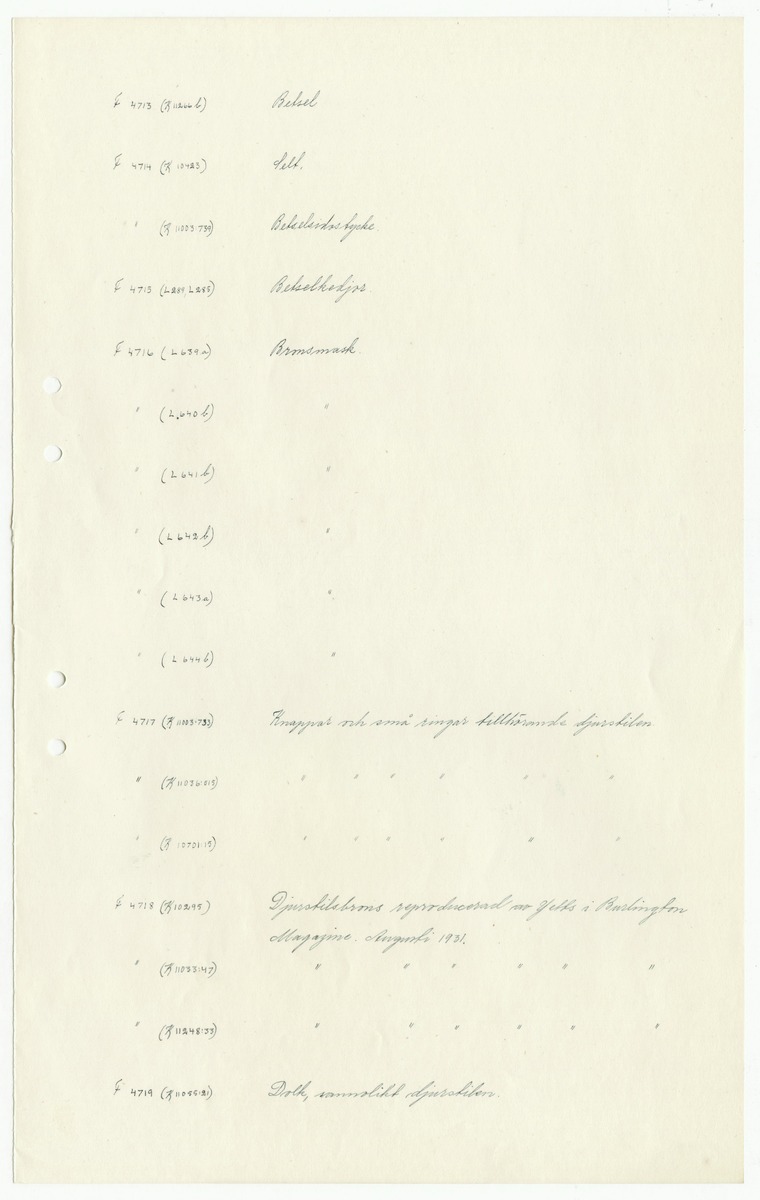 F 4713 (K 11266 b) Betsel
F 4714 (K 10423) Celt.
" (K 11003:739) Betselsidostycke.
F 4715 (L 289, L 285) Betselkedjor.
F 4716 (L 639 a) Bronsmask.
" (L 640 b) "
" (L 641 b) "
" (L 642 b) "
" (L 643 a) "
" (L 644 b) "
F 4717 (K 11003:733) Knappar och små ringar tillhörande djurstilen.
" (K 11036:015) " " " " " "
" (K 10701:15) " " " " " "
F 4718 (K 10295) Djurstilsbrons reproducerad av Yetts i Burlington
Magazine. Augusti 1931.
" (K 11033:47) " " " " " "
" (K 11248:33) " " " " " "
F 4719 (K 11055:21) Dolk, sannolikt djurstilen.